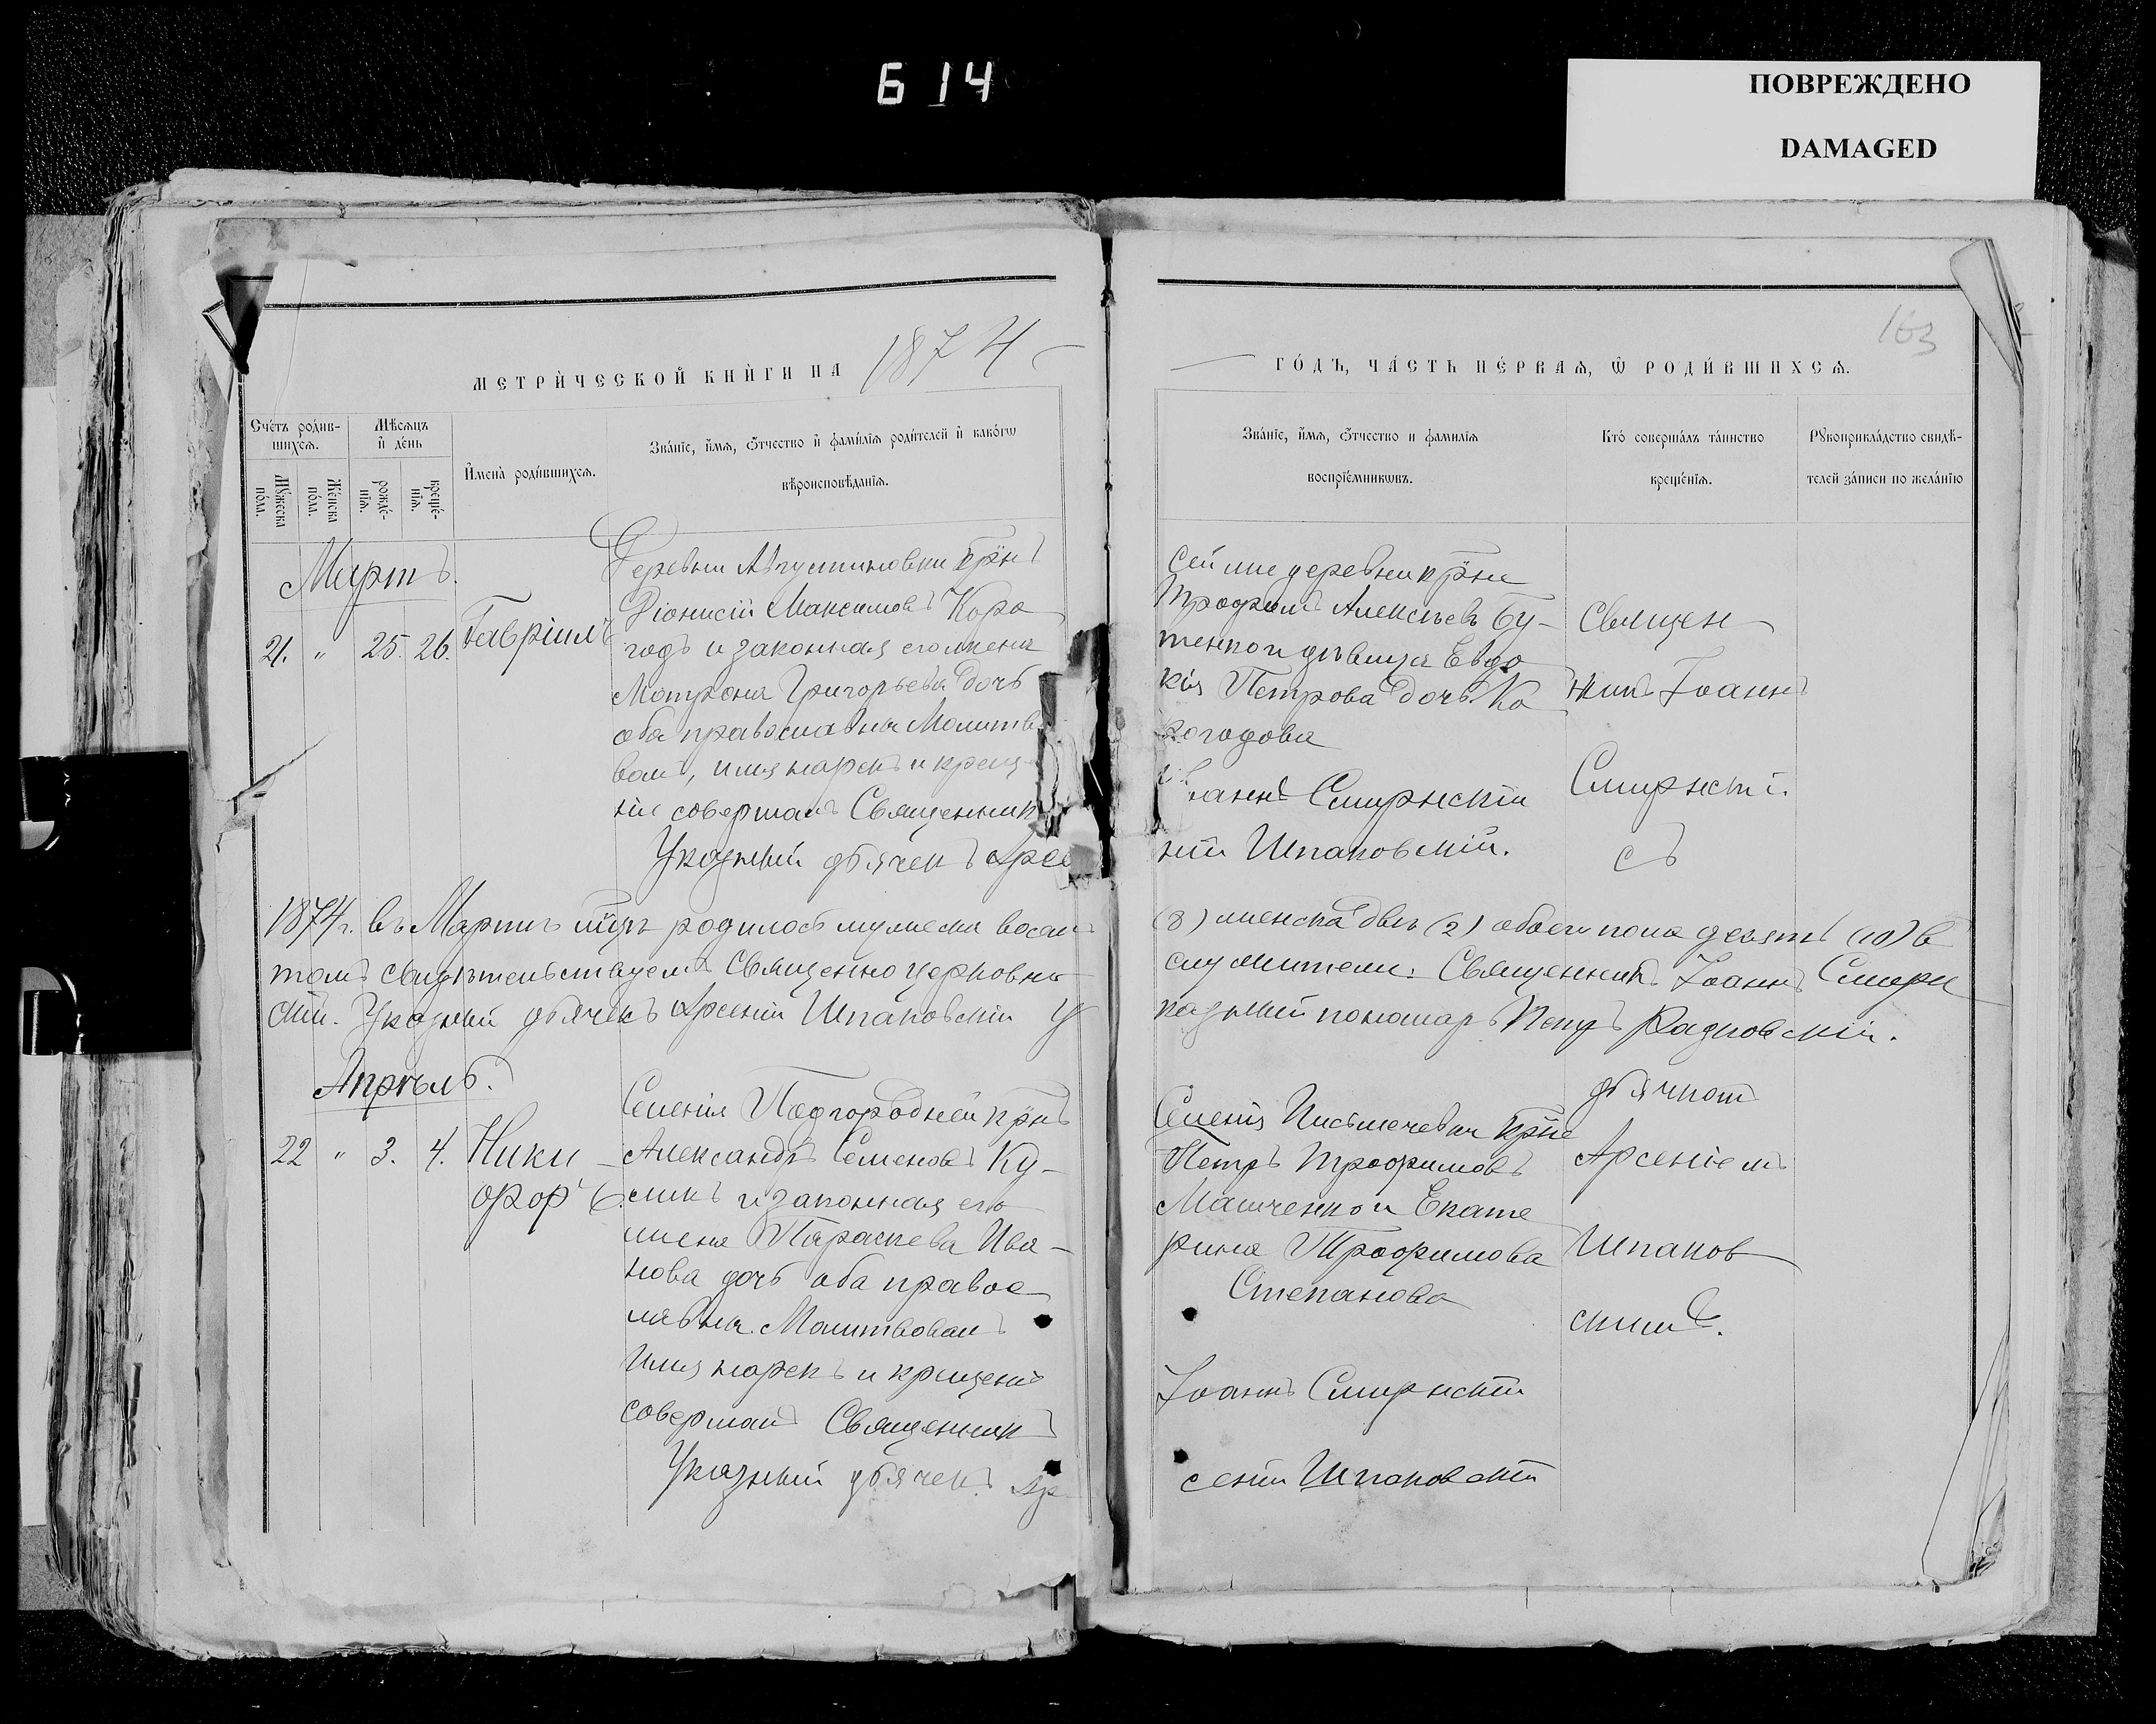 614
ПОВРЕЖДЕНО
DAMAGED
163
МЕТРИЧЕСКОЙ КНИГИ НА 1874
ГОДЪ, ЧАСТЬ ПЕРВАЯ, Ѡ РОДИВШИХСЯ.
Счетъ родив-
шихся.
Мѣсяцъ
и день
Мужеска
пола.
Женска
пола.
рожде-
нія.
креще-
нія.
Имена родившихся.
Званіе, имя, отчество и фамилія родителей и какогѡ
вѣроисповѣданія.
Званіе, имя, отчество и фамилія
воспріемникѡвъ.
Кто совершалъ таинство
крещенія.
Рукоприкладство свидѣ-
телей записи по желанію
Мартъ.
21. " 25. 26. Гавріилъ
Деревни Августиновки крнъ
Діонисій Максимовъ Коро
годъ и законная его жена
Матрона Григорьева дочь
оба православны Молитв
валъ, имя нарекъ и крещ
ніе совершалъ Священник
Указный дьячекъ Арсе
Сей же деревни крне
Трофимъ Алексѣевъ Бу-
тенко и дѣвица Евдо
кія Петрова дочь Ко
рогодова
Іоаннъ Смирнскій
ній Шпаковскій.
Священ
никъ Іоаннъ
Смирнскій.
съ
1874 г. въ Мартѣ мцѣ родилось мужеска восемь
(8) женска двѣ (2) обоего пола десять (10) в
томъ свидѣтельствуемъ Священно церковно
служители: Священникъ Іоаннъ Смирн
скій. Указный дьячекъ Арсеній Шпаковскій У
казный пономарь Петръ Радковскій.
Апрѣль.
22 " 3. 4. Ники
форъ
Селенія Подгородней крнъ
Александръ Семеновъ Ку-
ликъ и законная его
жена Параскева Ива-
нова дочь оба правос
лавны. Молитвовалъ
Имя нарекъ и крещеніе
совершалъ Священникъ
Указный дьячекъ Ар
Селенія Письмечевки крне
Петръ Трофимовъ
Машченко и Екате
рина Трофимова
Степанова
Іоаннъ Смирнскій
сеній Шпаковскій
дьячком
Арсеніемъ
Шпаков
скимъ.